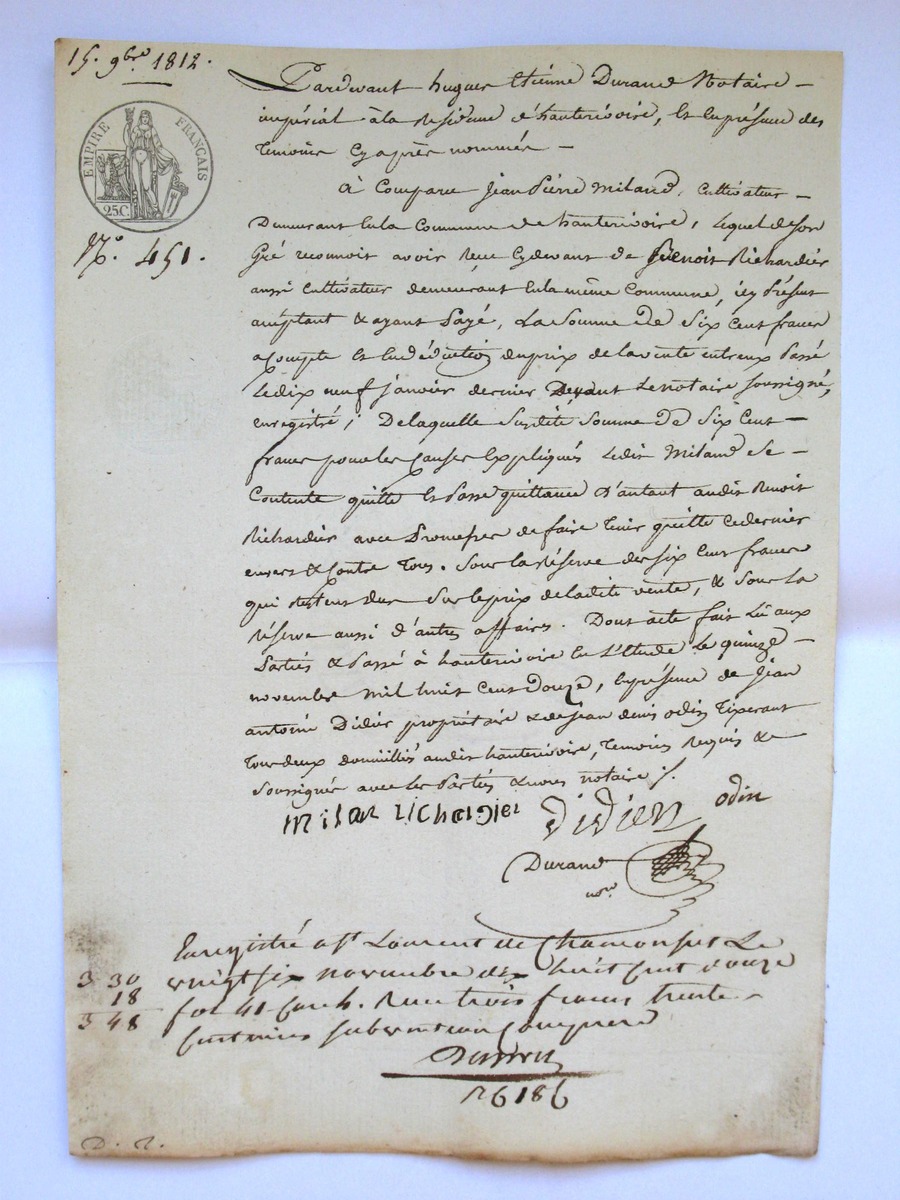 15. 9bre 1812.
EMPIRE FRANÇAIS
25C.
N°. 451.
Pardevant hugues Etienne Durand Notaire
impérial à la Residence d'hauterivoire, Et En présence des
temoins Cy après nommés
à Comparu Jean Pierre Miland, Cultivateur
Demeurant En la Commune de hauterivoire, lequel de son
Gré reconnoit avoir Reçu Cydevant de Benoit Richardier
aussi Cultivateur demeurant En la même Commune, icy Présent
acceptant & ayant Payé, La Somme de Six Cent francs
acompte Et En déduction du prix de la vente entreux Passé
Le dix neuf janvier dernier Devant Le notaire soussigné,
enregistré; De laquelle Susdite Somme de Six Cent
francs pour les Causes Expliqués Ledit Miland Se
Contente quitte Et Passe quittance d'autant audit Benoit
Richardier avec Promesses de faire tenir quitte ce dernier
envers & Contre Tous. Sous la Réserve des six Cent francs
qui Restent dus Sur le prix de ladite vente, & Sous la
Réserve aussi d'autres affaires. Dont acte fait Lû aux
Parties & Passé à hauterivoire En L'Etude Le quinze
novembre Mil huit Cent Douze, En présence de Jean
antoine Didier propriétaire & de Jean denis odin Tisserant
Tous deux domiciliés audit hauterivoire, Temoins Requis &
Soussignés avec les Parties & nous notaire ./.
milan richardier didier odin
Durand
nore.
Enregistré a St Laurent de Chamousset Le
vingt six novembre dix huit cent douze
fol 41 Case 4. Recu trois francs trente
centimes subvention Comprise
3 30
18
3 48
26186
D. 2.